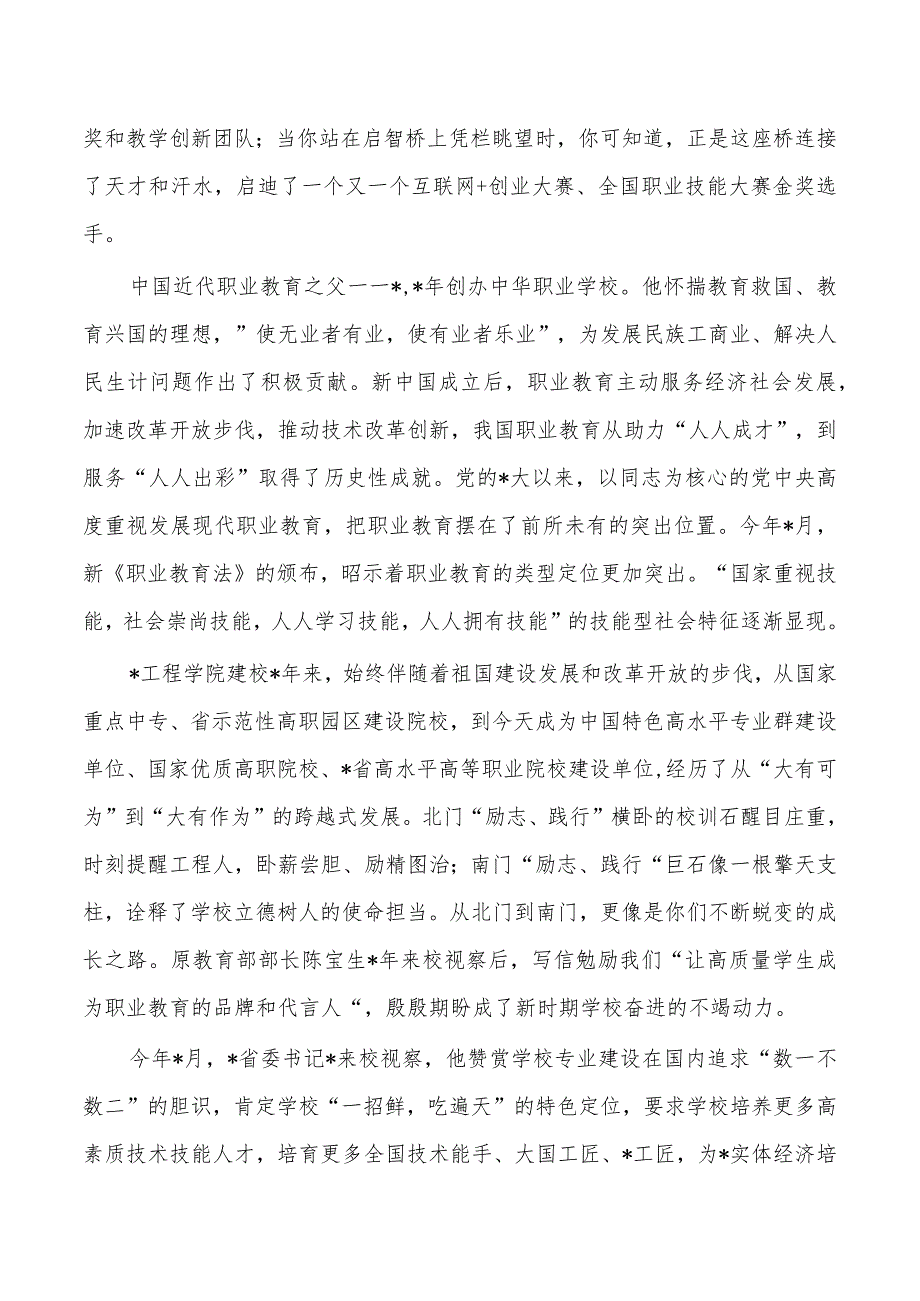 奖和教学创新团队；当你站在启智桥上凭栏眺望时，你可知道，正是这座桥连接
了天才和汗水，启迪了一个又一个互联网+创业大赛、全国职业技能大赛金奖选
手。
中国近代职业教育之父一一*,*年创办中华职业学校。他怀揣教育救国、教
育兴国的理想，”使无业者有业，使有业者乐业”，为发展民族工商业、解决人
民生计问题作出了积极贡献。新中国成立后，职业教育主动服务经济社会发展，
加速改革开放步伐，推动技术改革创新，我国职业教育从助力“人人成才”，到
服务“人人出彩”取得了历史性成就。党的*大以来，以同志为核心的党中央高
度重视发展现代职业教育，把职业教育摆在了前所未有的突出位置。今年*月，
新《职业教育法》的颁布，昭示着职业教育的类型定位更加突出。“国家重视技
能，社会崇尚技能，人人学习技能，人人拥有技能”的技能型社会特征逐渐显现。
*工程学院建校*年来，始终伴随着祖国建设发展和改革开放的步伐，从国家
重点中专、省示范性高职园区建设院校，到今天成为中国特色高水平专业群建设
单位、国家优质高职院校、*省高水平高等职业院校建设单位,经历了从“大有可
为”到“大有作为”的跨越式发展。北门“励志、践行”横卧的校训石醒目庄重，
时刻提醒工程人，卧薪尝胆、励精图治；南门“励志、践行“巨石像一根擎天支
柱，诠释了学校立德树人的使命担当。从北门到南门，更像是你们不断蜕变的成
长之路。原教育部部长陈宝生*年来校视察后，写信勉励我们“让高质量学生成
为职业教育的品牌和代言人“，殷殷期盼成了新时期学校奋进的不竭动力。
今年*月，*省委书记*来校视察，他赞赏学校专业建设在国内追求“数一不
数二”的胆识，肯定学校“一招鲜，吃遍天”的特色定位，要求学校培养更多高
素质技术技能人才，培育更多全国技术能手、大国工匠、*工匠，为*实体经济培